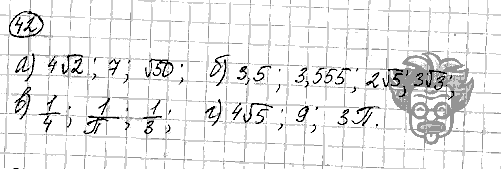 42
а) 4√2; 7; √50; б) 3,5; 3,555; 2√5; 3√3;
в) 1/4; 1/π; 1/3; г) 4√5; 9; 3π.